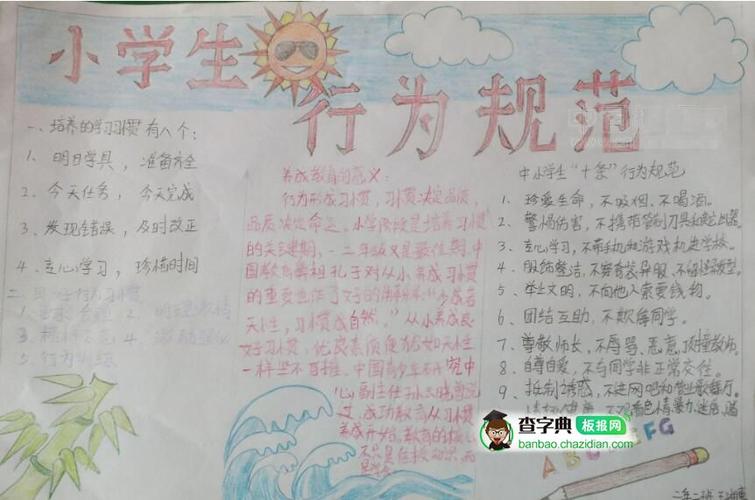 小学生
行为规范
一、培养的学习习惯有八个：
1、明日学具，准备齐全
2、今天任务，今天完成
3、发现错误，及时改正
4、专心学习，珍惜时间
养成教育的意义：
行为形成习惯，习惯决定品质，
品质决定命运。小学阶段是培养习惯
的关键期，一二年级又是最佳期。中
国教育鼻祖孔子对从小养成习惯
的重要也作了好的解释："少成若
天性，习惯成自然。"从小养成良
好习惯，优良素质便犹如天性
一样坚不可摧。中国青少年研究中
心副主任孙云晓曾说
过，成功教育从习惯
养成开始。教育的核心
不只是传授知识，而
是学会
中小学生"十条"行为规范
1、珍爱生命，不吸烟、不喝酒。
2、警惕伤害，不携带管制刀具和
3、专心学习，不带手机和游戏机进学校。
4、服饰整洁，不穿奇装异服、不留怪发型。
5、举止文明，不向他人索要钱物。
6、团结互助，不欺侮同学。
7、尊敬师长，不辱骂、恶意顶撞教师。
8、自尊自爱，不与同学非正常交往。
9、抵制诱惑，不进网吧和营业歌舞厅
A B C D E F G
查字典 板报网
banbao.chazidian.com